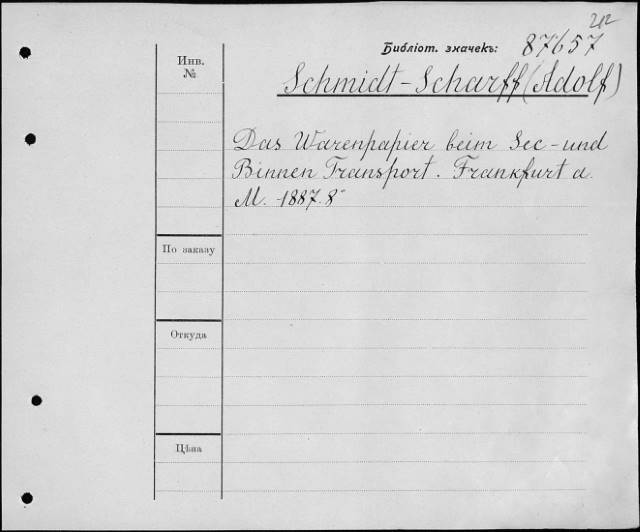 212
Библіот. значекъ: 87657
Инв.
№
Schmidt-Scharff (Adolf)
Das Warenpapier beim See- und
Binnen Transport. Frankfurt a
M. 1887. 8°
По заказу
Откуда
Цѣна